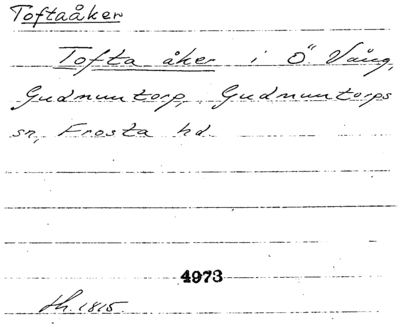 Toftaåker
Tofta åker i Ö. Vång,
Gudmuntorp, Gudmuntorps
sn, Frosta hd
4973
th. 1815.